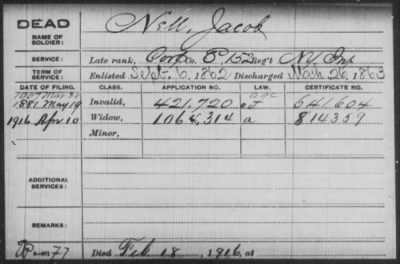 DEAD
NAME OF SOLDIER:
Nell, Jacob
SERVICE:
Late rank, Corp Co. E, 152 Regt NY Inf
TERM OF SERVICE:
Enlisted Sept. 6, 1862 Discharged Mch 26, 1863
DATE OF FILING. CLASS. APPLICATION NO. LAW. CERTIFICATE NO.
1881 May 19 Invalid, 421.720 641.604
1916 Apr 10 Widow, 814359
Minor,
ADDITIONAL SERVICES:
REMARKS:
77 Died Feb 18, 1916, at